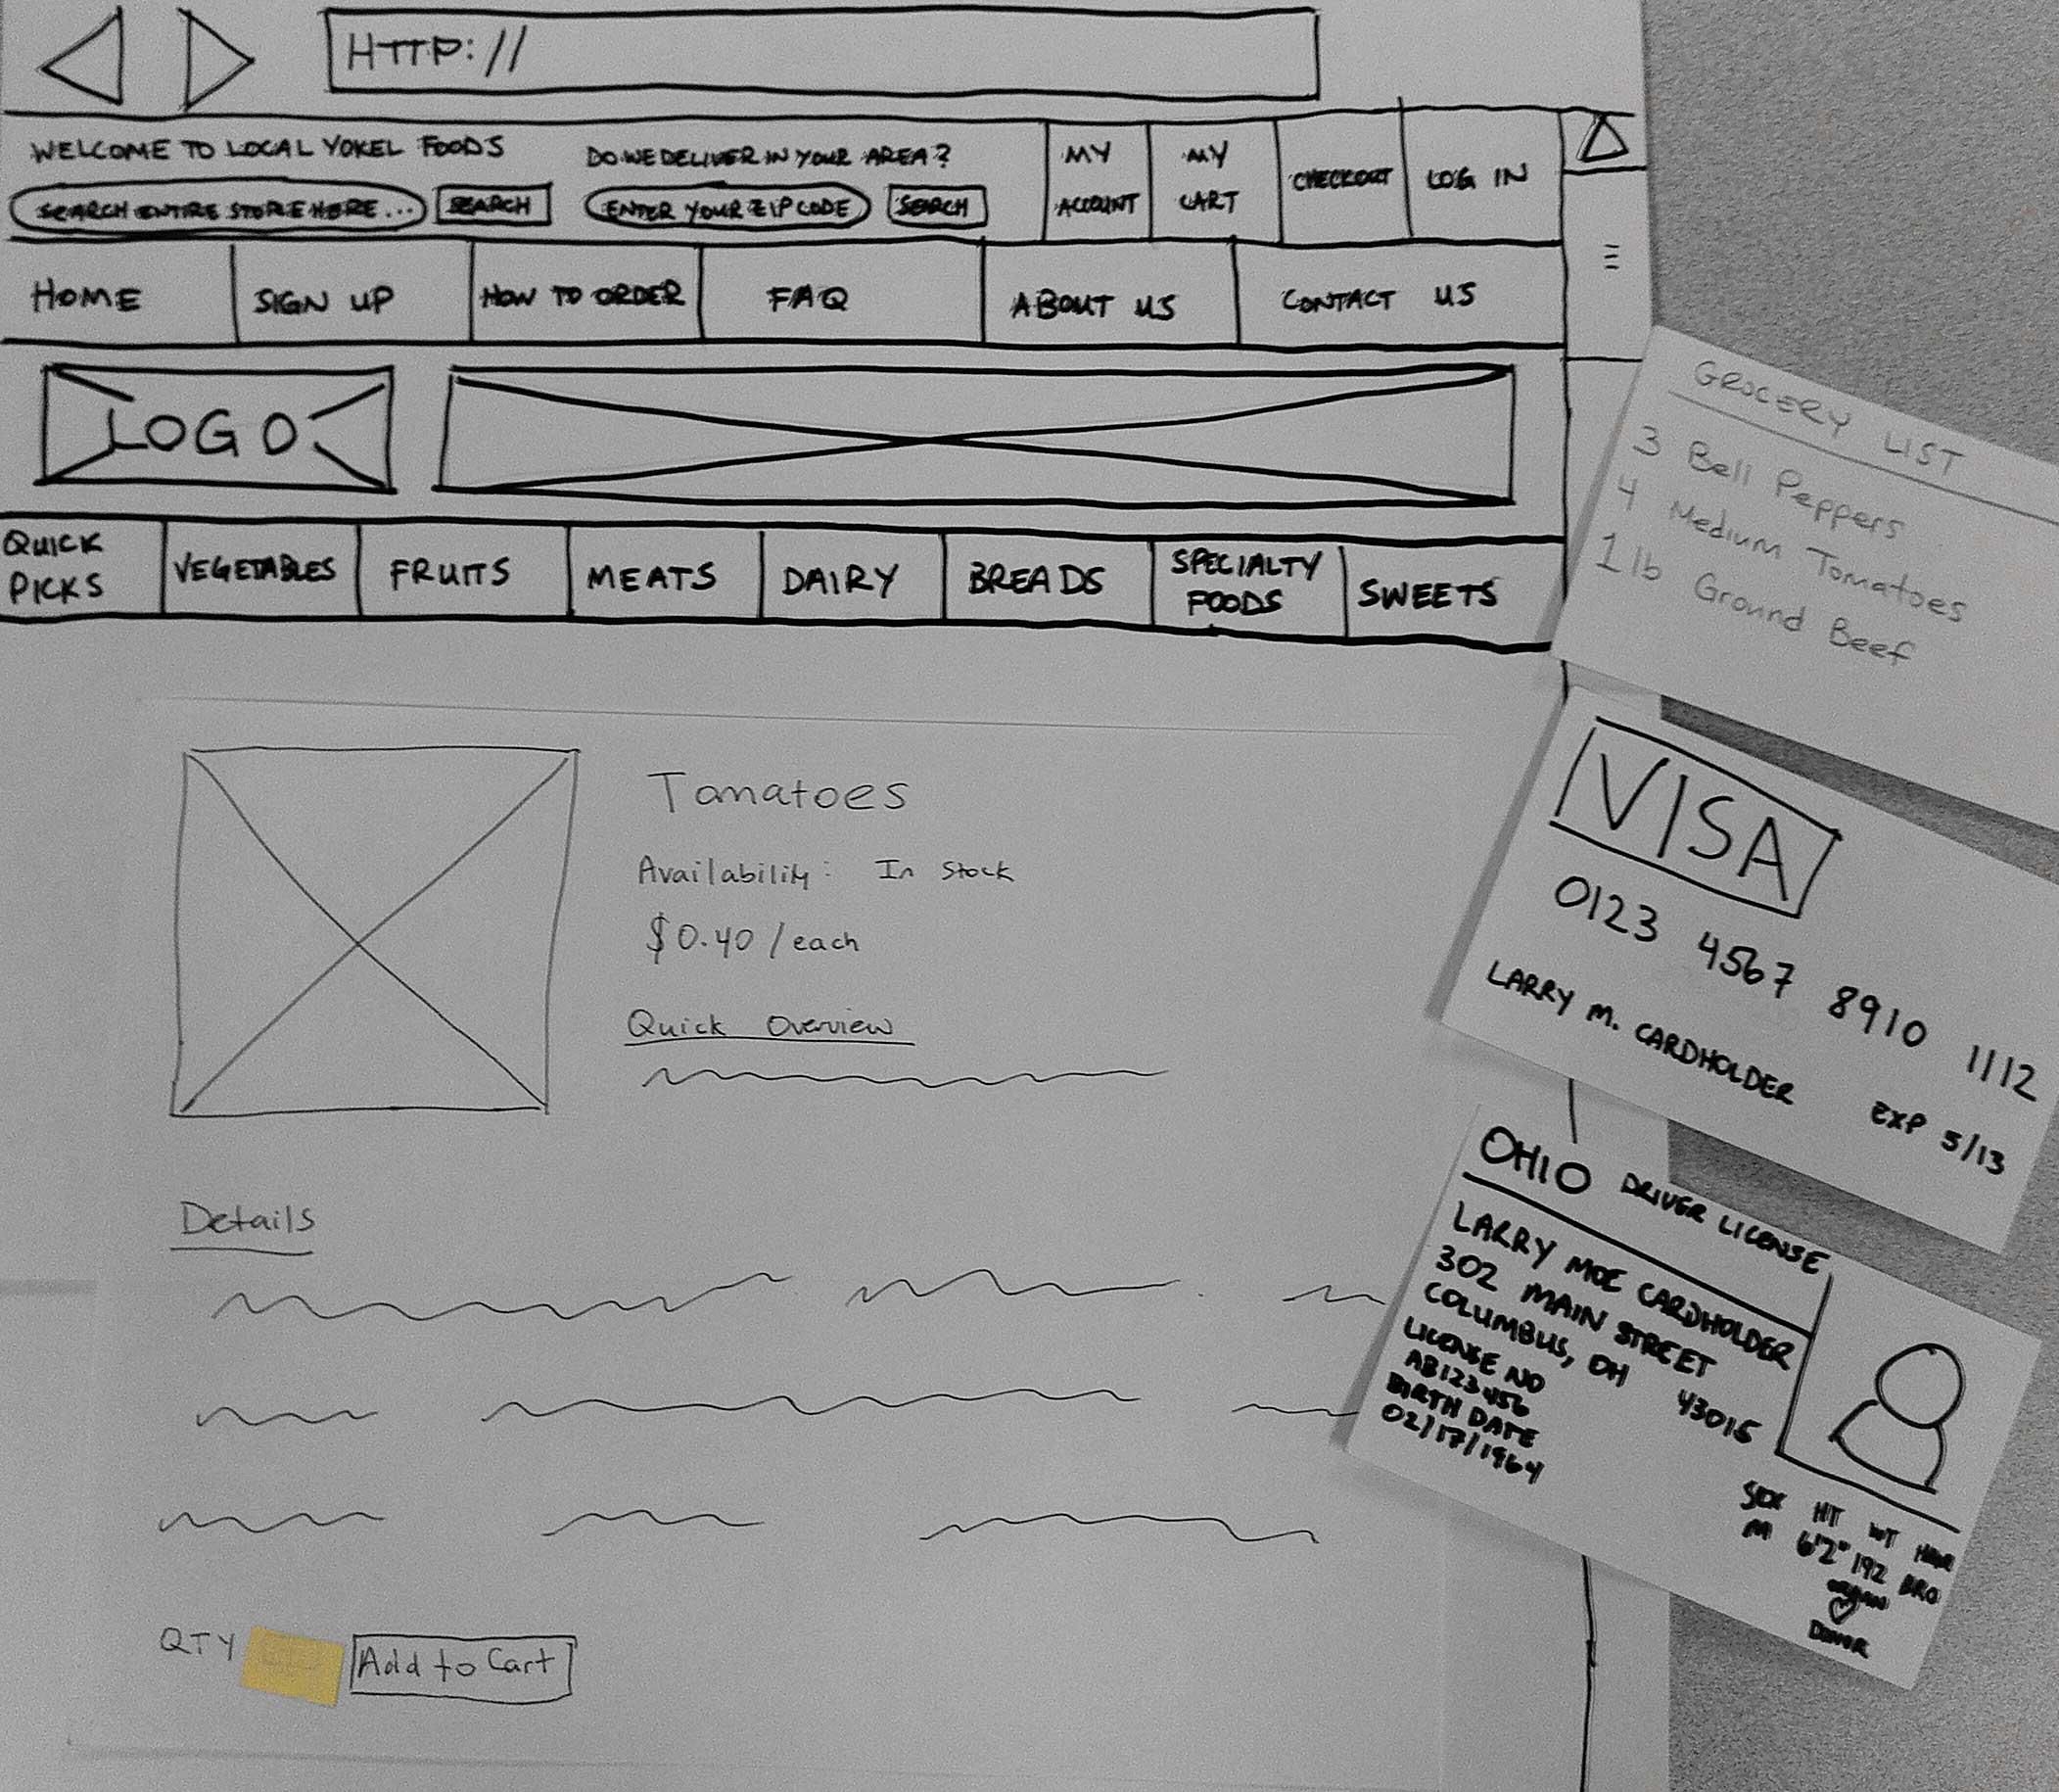 HTTP://
WELCOME TO LOCAL YOKEL FOODS
SEARCH ENTIRE STORE HERE...
SEARCH
DO WE DELIVER IN YOUR AREA?
ENTER YOUR ZIP CODE
SEARCH
MY
ACCOUNT
MY
CART
CHECKOUT
LOG IN
HOME
SIGN UP
HOW TO ORDER
FAQ
ABOUT US
CONTACT US
LOGO
QUICK
PICKS
VEGETABLES
FRUITS
MEATS
DAIRY
BREADS
SPECIALTY
FOODS
SWEETS
Tomatoes
Availability: In Stock
$0.40/each
Quick Overview
Details
QTY
Add to Cart
GROCERY LIST
3 Bell Peppers
4 Medium Tomatoes
1 lb Ground Beef
VISA
0123 4567 8910 1112
LARRY M. CARDHOLDER EXP 5/13
OHIO DRIVER LICENSE
LARRY MOE CARDHOLDER
302 MAIN STREET
COLUMBUS, OH 43015
LICENSE NO
AB123456
BIRTH DATE
02/17/1964
SEX HT WT HAIR
M 6'2" 192 BRO
ORGAN
DONOR